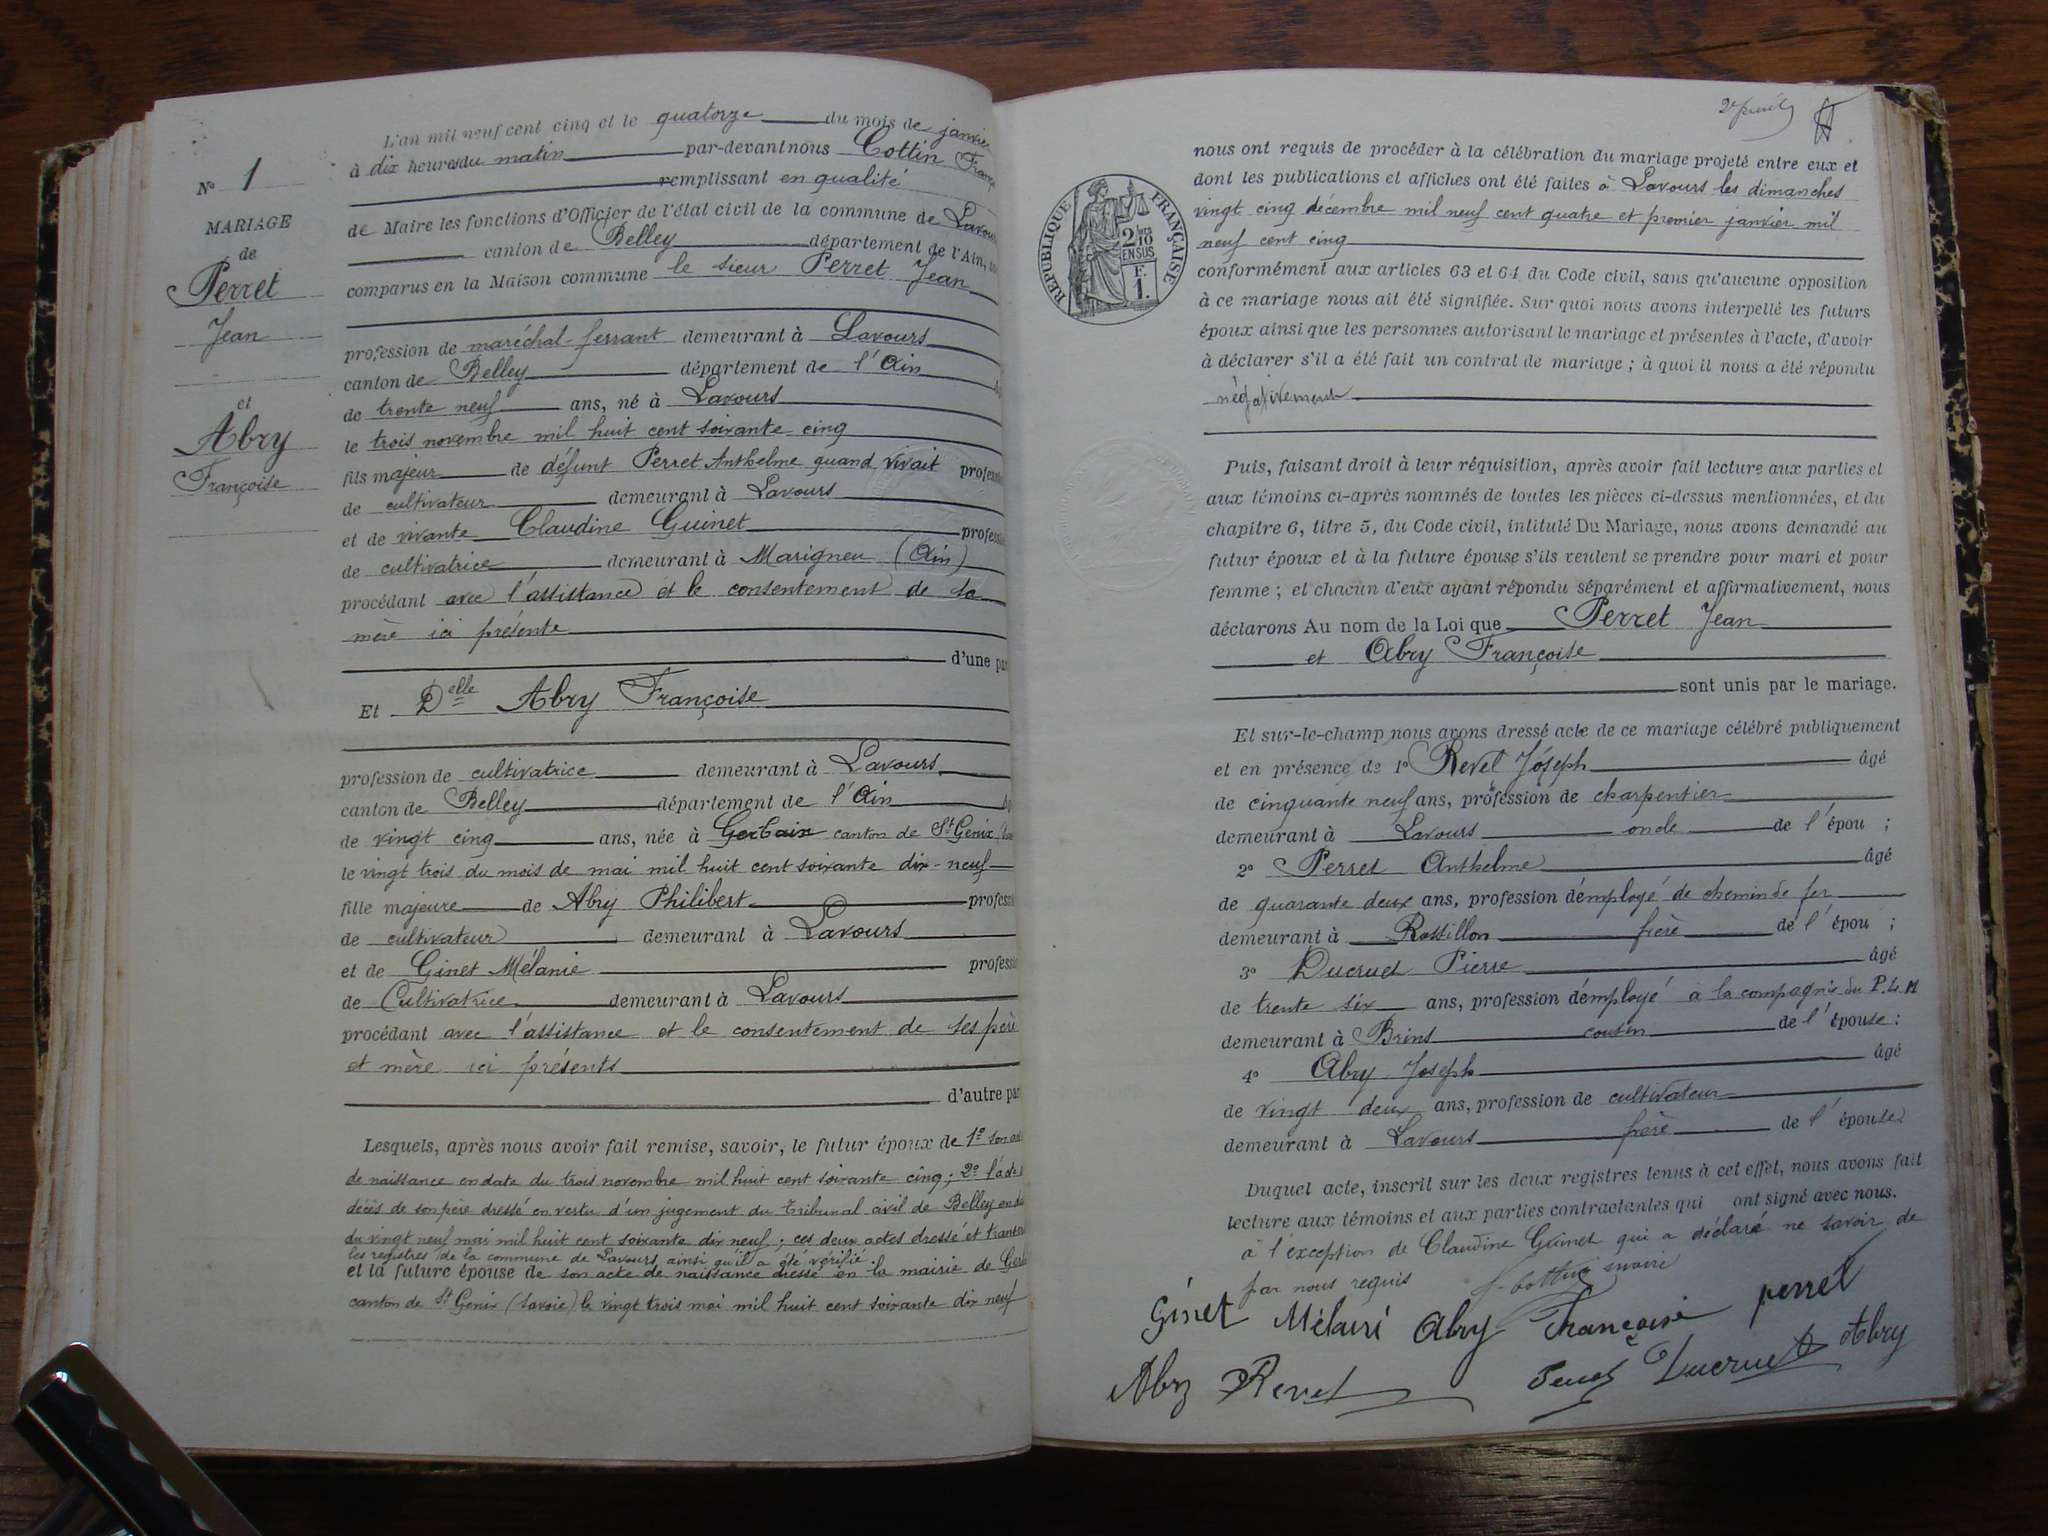 N° 1
MARIAGE
de
Perret
Jean
et
Abry
Françoise
L'an mil neuf cent cinq et le quatorze du mois de janvier
à dix heures du matin par-devant nous Cottin
remplissant en qualité
de Maire les fonctions d'Officier de l'état civil de la commune de Lavours
canton de Belley département de l'Ain,
comparus en la Maison commune le sieur Perret Jean
profession de maréchal-ferrant demeurant à Lavours
canton de Belley département de l'Ain
de trente neuf ans, né à Lavours
le trois novembre mil huit cent soixante cinq
fils majeur de défunt Perret Anthelme quand vivait
de cultivateur demeurant à Lavours
et de vivante Claudine Guinet
de cultivatrice demeurant à Marigneu (Ain)
procédant avec l'assistance et le consentement de sa
mère ici présente
d'une par
Et Delle Abry Françoise
profession de cultivatrice demeurant à Lavours
canton de Belley département de l'Ain
de vingt cinq ans, née à Gerbaix canton de St Genix
le vingt trois du mois de mai mil huit cent soixante dix-neuf
fille majeure de Abry Philibert
de cultivateur demeurant à Lavours
et de Ginet Mélanie
de Cultivatrice demeurant à Lavours
procédant avec l'assistance et le consentement de ses père
et mère ici présents
d'autre par
Lesquels, après nous avoir fait remise, savoir, le futur époux de 1° son
de naissance en date du trois novembre mil huit cent soixante cinq; 2° l'acte
décès de son père dressé en vertu d'un jugement du Tribunal civil de Belley en
du vingt neuf mai mil huit cent soixante dix neuf; ces deux actes dressé et
les registres de la commune de Lavours, ainsi qu'il a été vérifié.
et la future épouse de son acte de naissance dressé en la mairie de
canton de St Genix (Savoie) le vingt trois mai mil huit cent soixante dix neuf
nous ont requis de procéder à la célébration du mariage projeté entre eux et
dont les publications et affiches ont été faites à Lavours les dimanches
vingt cinq décembre mil neuf cent quatre et premier janvier mil
neuf cent cinq
RÉPUBLIQUE FRANÇAISE
2/10
EN SUS
F.
1.
conformément aux articles 63 et 64 du Code civil, sans qu'aucune opposition
à ce mariage nous ait été signifiée. Sur quoi nous avons interpellé les futurs
époux ainsi que les personnes autorisant le mariage et présentes à l'acte, d'avoir
à déclarer s'il a été fait un contrat de mariage ; à quoi il nous a été répondu
négativement
Puis, faisant droit à leur réquisition, après avoir fait lecture aux parties et
aux témoins ci-après nommés de toutes les pièces ci-dessus mentionnées, et du
chapitre 6, titre 5, du Code civil, intitulé Du Mariage, nous avons demandé au
futur époux et à la future épouse s'ils veulent se prendre pour mari et pour
femme ; et chacun d'eux ayant répondu séparément et affirmativement, nous
déclarons Au nom de la Loi que Perret Jean
et Abry Françoise
sont unis par le mariage.
Et sur-le-champ nous avons dressé acte de ce mariage célébré publiquement
et en présence de 1° Revel Joseph âgé
de cinquante neuf ans, profession de charpentier
demeurant à Lavours oncle de l'épou ;
2° Perret Anthelme âgé
de quarante deux ans, profession d'employé de chemin de fer
demeurant à Rossillon frère de l'épou ;
3° Ducruet Pierre âgé
de trente six ans, profession d'employé à la compagnie du P.L.M
demeurant à Brens cousin de l'épouse ;
4° Abry Joseph âgé
de vingt deux ans, profession de cultivateur
demeurant à Lavours frère de l'épouse
Duquel acte, inscrit sur les deux registres tenus à cet effet, nous avons fait
lecture aux témoins et aux parties contractantes qui ont signé avec nous.
à l'exception de Claudine Guinet qui a déclaré ne savoir de
par nous requis f. Cottin maire
Ginet Mélani Abry Françoise perret
Abry Revel Ducruet Abry